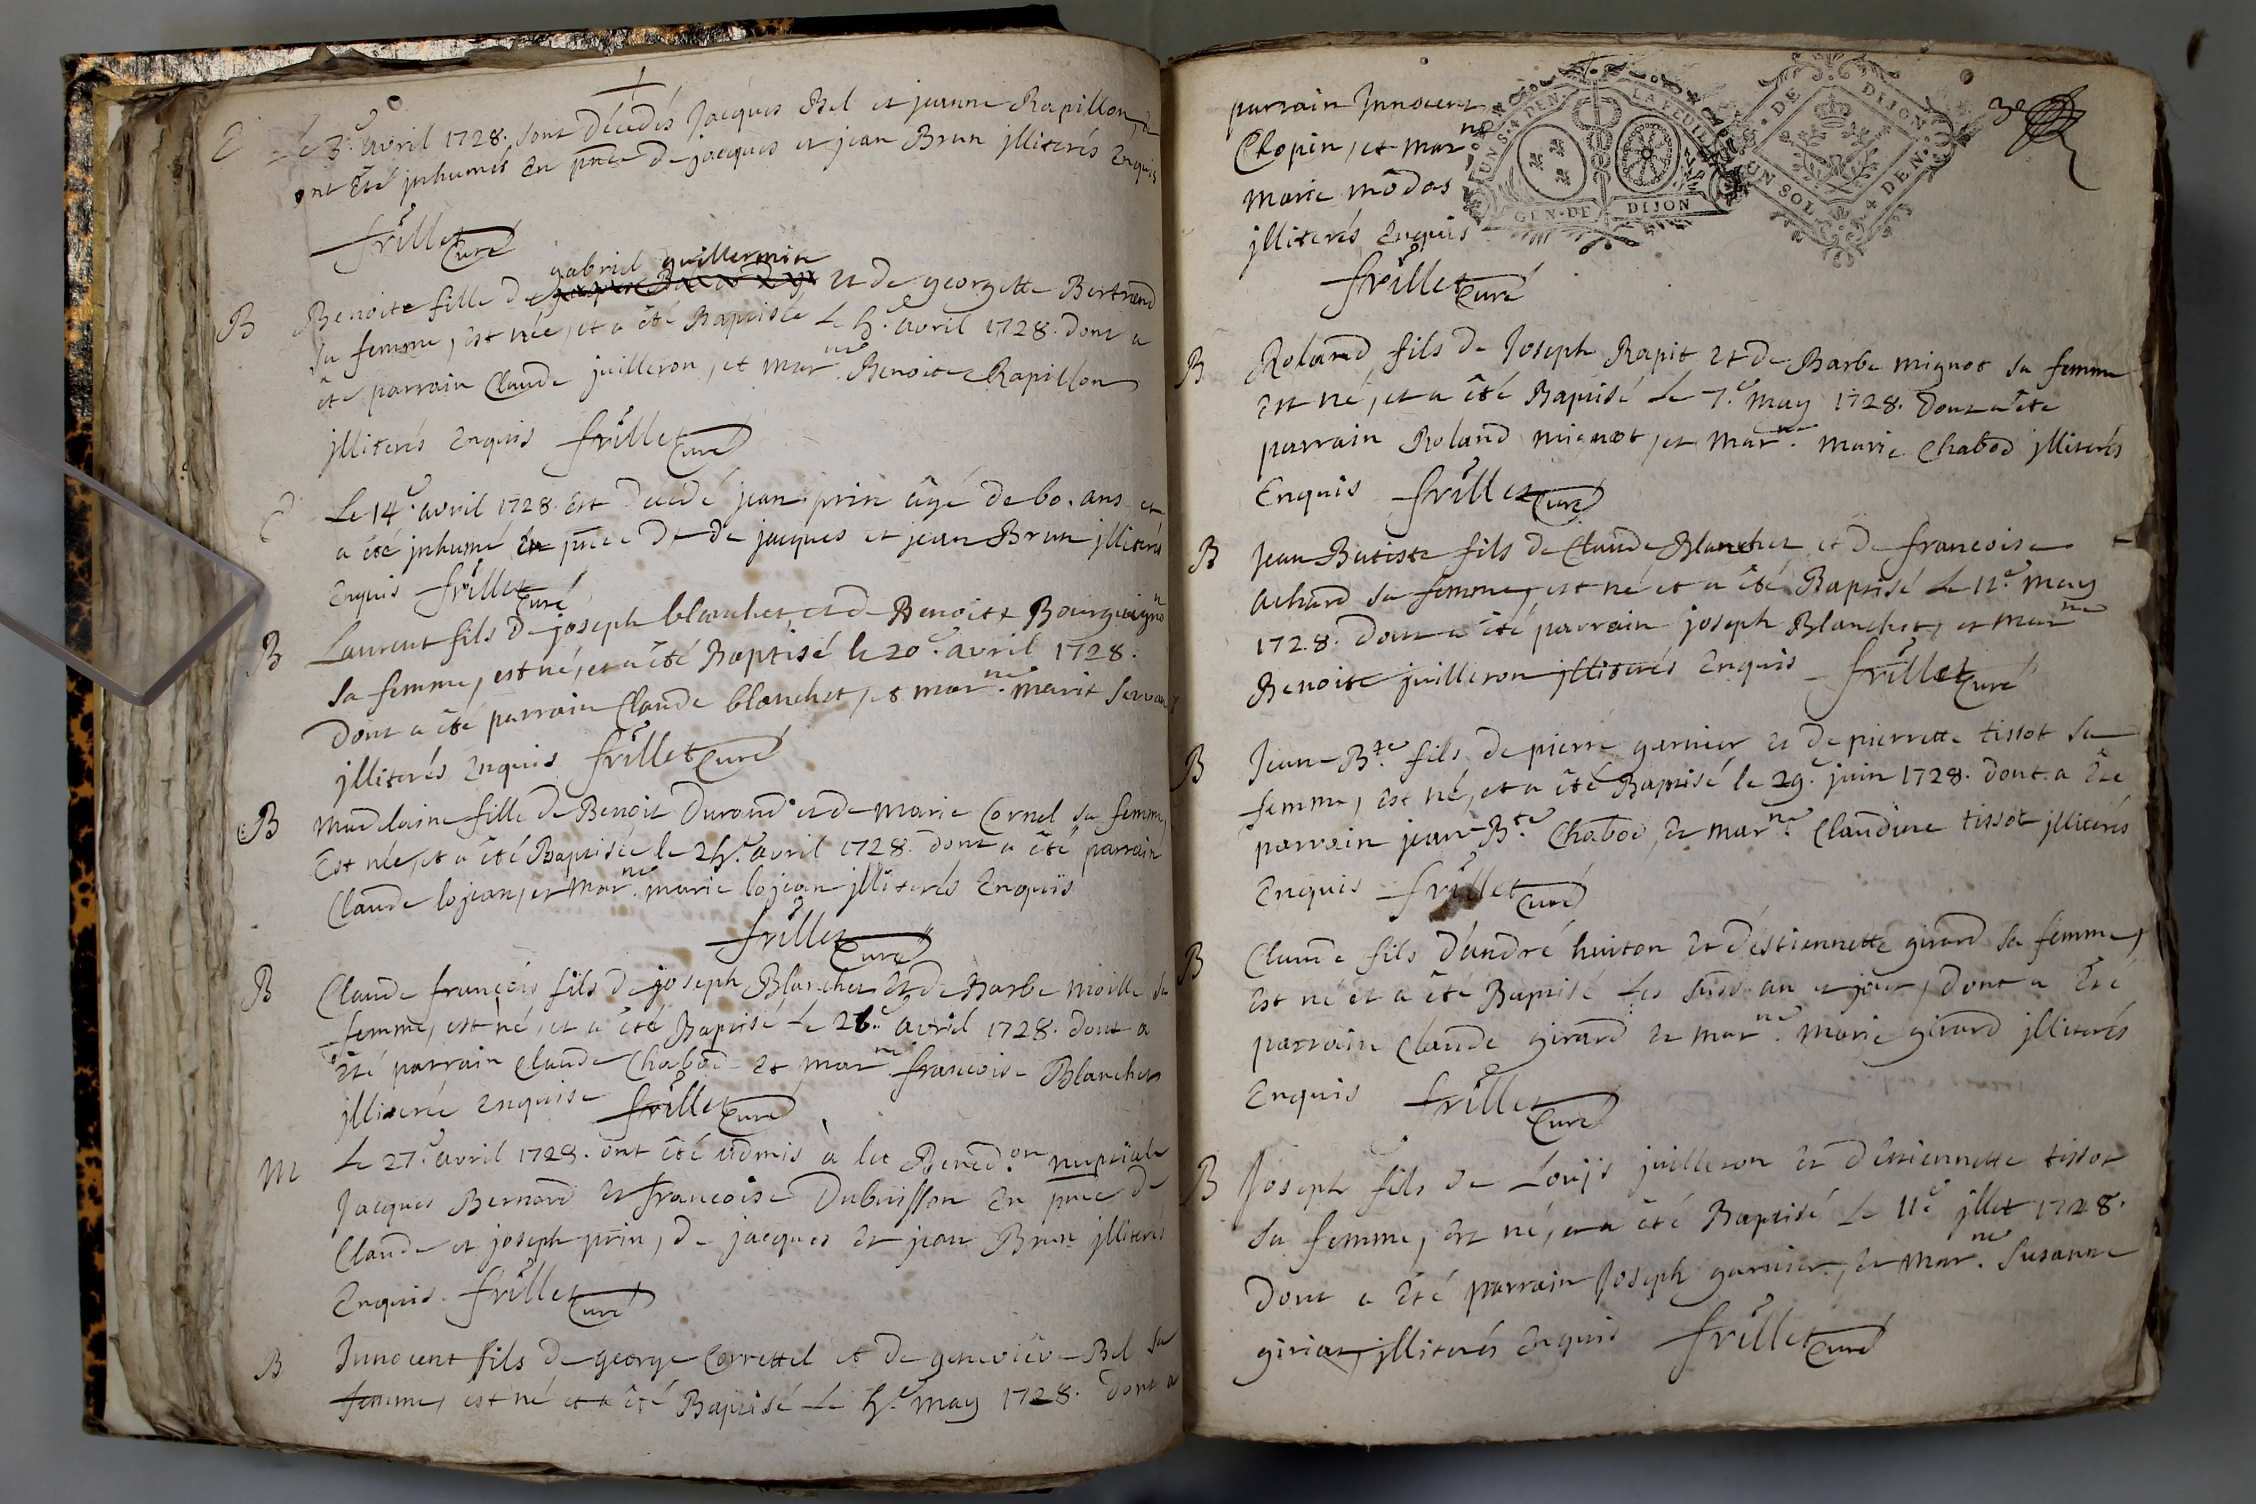 Le 3.e avril 1728. sont décédés Jacques Bel et jeanne Rapillon, et
ont été jnhumés En pnce de jacques et jean Brun jlliterés Enquis
frillet Curé
gabriel guillermin
B Benoite fille de et de georgette Bertrand
sa femme, est née, et a été Baptisée Le 5.e avril 1728. dont a
été parrain Claude juilleron, et mar.ne Benoite Rapillon
jlliterés Enquis frillet Curé
Le 14.e avril 1728. Est décédé jean prin âgé de 60. ans et
a été jnhumé En pnce de de jacques et jean Brun jlliterés
Enquis frillet Curé
B Laurent fils de joseph blanchet, et de Benoite Bourguign
sa femme, est né, et a été Baptisé le 20.e avril 1728.
dont a été parrain Claude blanchet, et mar.ne marie
jlliterés Enquis frillet Curé
B Madelaine fille de Benoit Durand et de marie Cornel sa femme,
Est née, et a été Baptisée le 25.e avril 1728. dont a été parrain
Claude lojean, et mar.ne marie lojean jlliterés Enquis
frillet Curé
B Claude françois fils de joseph Blanchet Et de Barbe sa
femme, est né, et a été Baptisé Le 26.e avril 1728. dont a
Eté parrain Claude Chabod Et mar.ne francoise Blanchet
jlliterée Enquise frillet Curé
M Le 27.e avril 1728. ont été admis à la Bened.on nuptiale
Jacques Bernard Et francoise Dubuisson En pnce de
Claude et joseph prin, de jacques Et jean Brun jlliterés
Enquis frillet Curé
B Jnnocent fils de george Correttel et de genevieve Bel sa
femme, est né et a été Baptisé Le 5.e may 1728. dont a
parrain Jnnocent
Clopin, et mar.ne
marie mõdas
jlliterés Enquis
frillet Curé
UN S. 4 DEN. LA FEUILLE
GEN. DE DIJON
G. DE DIJON
UN SOL 4 DEN.
3e
B Roland fils de Joseph Rapit Et de Barbe mignot sa femme
Est né, et a été Baptisé Le 7.e may 1728. dont a été
parrain Roland mignot, et mar.ne marie Chabod jlliterés
Enquis frillet Curé
B Jean Batiste fils de Claude Blanchet et de francoise
achard sa femme, est né et a été Baptisé Le 11.e may
1728. dont a été parrain joseph Blanchet, et mar.ne
Benoite juilleron jlliterés Enquis frillet Curé
B Jean-B.te fils de pierre garnier et de pierrette tissot sa
femme, Est né, et a été Baptisé le 29.e juin 1728. dont a Eté
parrain jean-B.te Chabod, Et mar.ne Claudine tissot jlliterés
Enquis frillet Curé
B Claude fils d'andré huiton Et d'éstiennette girard sa femme,
Est né et a été Baptisé Les susd. an et jour, dont a Eté
parrain Claude girard Et mar.ne marie girard jlliterés
Enquis frillet Curé
B Joseph fils de Louys juilleron Et d'Etiennette tissot
sa femme, Est né, et a été Baptisé Le 11.e jllet 1728.
dont a Eté parrain Joseph garnier, Et mar.ne Susanne
jlliterés Enquis frillet Curé